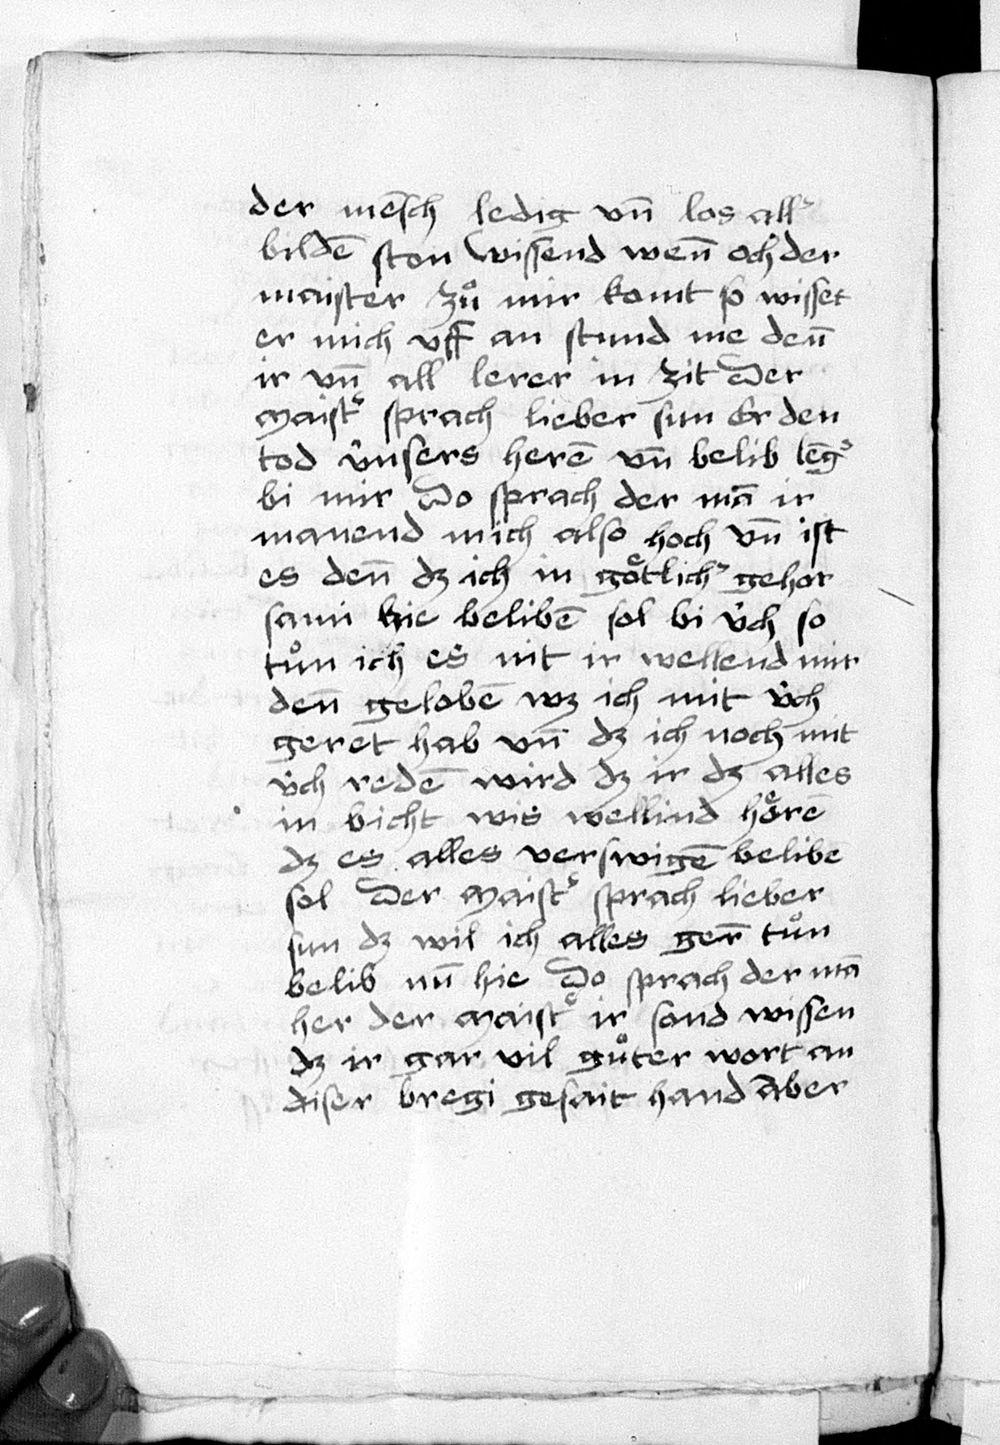 der mēsch ledig vn̄ los all͛
bildē ston wissend wen̄ och der
maister zů mir komt so wisset
er mich vff an stund me den̄
ir vn̄ all lerer in zit Der
maist͛ sprach lieber sun Er den
tod v̈nsers herē vn̄ belib lēg͛
bi mir Do sprach der mā ir
manend mich also hoch vn̄ ist
es den̄ dz ich in goͤtlich͛ gehor
sami hie belibē sol bi v̈ch so
tůn ich es nit ir wellend mir
den̄ gelobē wz ich mit v̈ch
geret hab vn̄ dz ich noch mit
v̈ch redē wird dz ir dz alles
in bicht wis wellind hoͤrē
dz es alles verswigē belibē
sol Der maist͛ sprach lieber
sun dz wil ich alles ger̄ tůn
belib nu̅ hie Do sprach der mā
her der maist͛ ir sond wissen
dz ir gar vil gůter wort an
diser bregi gesait hand Aber